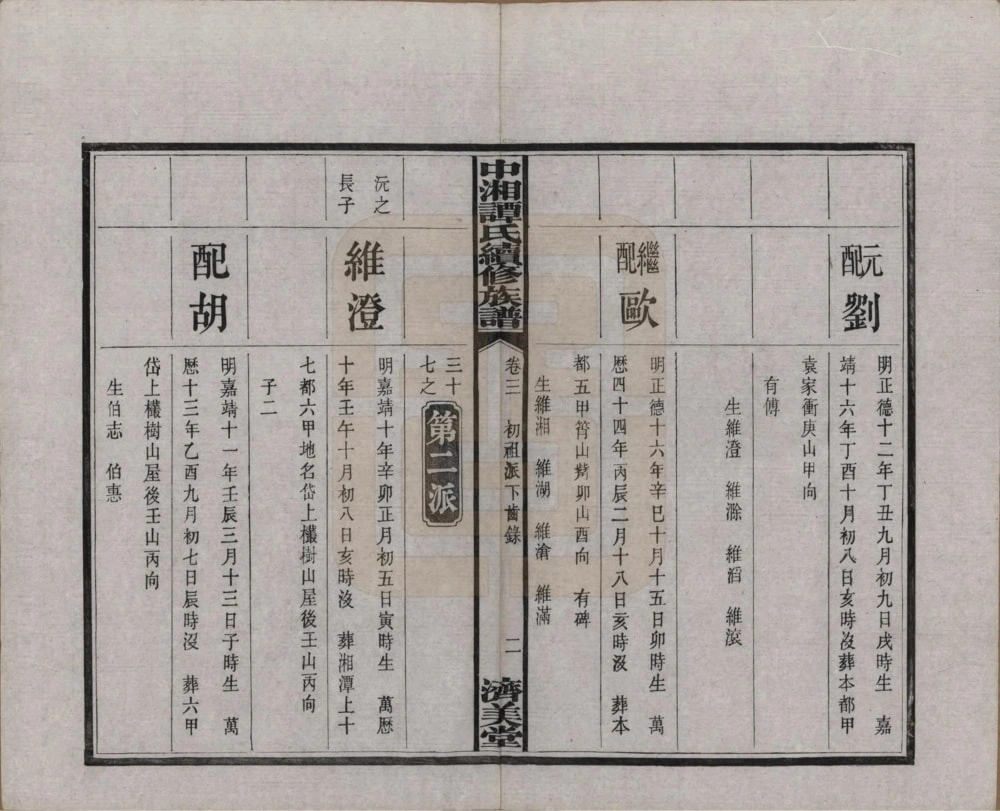 元配劉
明正德十二年丁丑九月初九日戌時生　嘉
靖十六年丁酉十月初八日亥時沒葬本都甲
袁家衝庚山甲向
有傅
生維澄　維滁　維滔　維滾
繼配歐
明正德十六年辛巳十月十五日卯時生　萬
歷四十四年丙辰二月十八日亥時沒　葬本
都五甲筲山 卯山酉向　有碑
生維湘　維湖　維滄　維滿
中湘譚氏續修族譜
卷三　初祖派下齒錄
二
濟美堂
三十七之
第二派
沅之長子
維澄
明嘉靖十年辛卯正月初五日寅時生　萬歷
十年壬午十月初八日亥時沒　葬湘潭上十
七都六甲地名岱上欉樹山屋後壬山丙向
子二
配胡
明嘉靖十一年壬辰三月十三日子時生　萬
歷十三年乙酉九月初七日辰時沒　葬六甲
岱上欉樹山屋後壬山丙向
生伯志　伯惠